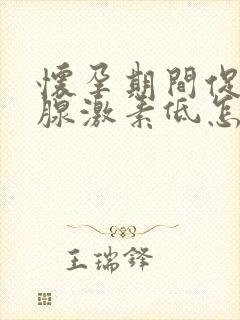 懷孕期間促
腺激素低怎
王瑞鋒